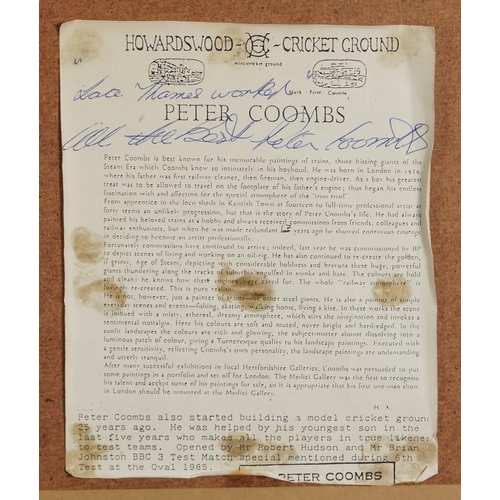 HOWARDSWOOD - CC - CRICKET GROUND
minicricket ground
Peter Coombs
"Late Thames worked
PETER COOMBS
All the Best Peter Coombs
Peter Coombs is best known for his memorable paintings of trains, those hissing giants of the
Steam Era which Coombs knew so intimately in his boyhood. He was born in London in
where his father was first railway cleaner, then fireman, then engine-driver. As a boy his greatest
treat was to be allowed to travel on the footplate of his father's engine; thus began his endless
fascination with and affection for the special atmosphere of the 'iron road'.
From apprentice in the loco sheds in Kentish Town at fourteen to full-time professional artist at
forty seems an unlikely progression, but that is the story of Peter Coombs's life. He had always
painted his beloved trains as a hobby and always received commissions from friends, colleagues and
railway enthusiasts, but when he was made redundant years ago he showed enormous courage
in deciding to become an artist professionally.
Fortunately commissions have continued to arrive; indeed, last year he was commissioned by BP
to depict scenes of living and working on an oil-rig. He has also continued to re-create the golden,
if grimy, Age of Steam, depicting with considerable boldness and bravura these huge, powerful
giants thundering along the tracks engulfed in smoke and haze. The colours are bold
and clean: he knows how there cared for. The whole "railway
re-created. This is pure realism.
He is not, however, just a painter of other steel giants. He is also a painter of simple
everyday scenes and events—fishing, skating, walking home, flying a kite. In these works the scene
is imbued with a misty, ethereal, dreamy atmosphere, which stirs the imagination and invokes a
sentimental nostalgia. Here his colours are soft and muted, never bright and hard-edged. In the
sunlit landscapes the colours are rich and glowing, the subject-matter almost dissolving into a
luminous patch of colour, giving a Turneresque quality to his landscape paintings. Executed with
a gentle sensitivity, reflecting Coombs's own personality, the landscape paintings are undemanding
and utterly tranquil.
After many successful exhibitions in local Hertfordshire Galleries, Coombs was persuaded to put
some paintings in a portfolio and set off for London. The Medici Gallery was the first to recognise
his talent and accept some of his paintings for sale, so it is appropriate that his first one-man show
in London should be mounted at the Medici Gallery.
H.A.
Peter Coombs also started building a model cricket ground
25 years ago. He was helped by his youngest son in the
last five years who makes all the players in true likeness
to test teams. Opened by Mr Robert Hudson and Mr Brian
Johnston BBC 3 Test Match Special mentioned during 6th
Test at the Oval 1985.
PETER COOMBS